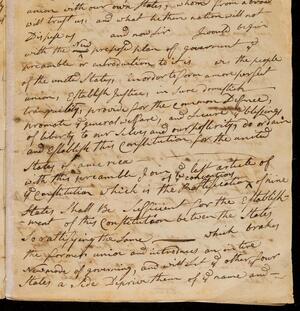 union with our own States, whom from a broad
will trust us, and what hethen nation will not
Dispise us and now Sir I would begin
with the New proposed plan of government &
preamble or introduction to it is we the people
of the united States, In order to form a more perfect
union, Establish Justice, in Sure domestick
tranquility, provide for the Common Defence,
promote general welfare, and Secure the blessings
of liberty to our Selves and our posterity, do ordain
and Establish this Constitution for the united
States of america
with this preamble Joyn the last article of
the Constitution which is the Ratification of nine
States Shall Be Sufficient for the Establish-
ment of this Constitution between the States
So ratifying the Same which brakes
the former union and introduces an intire
New mode of governing, and will Set the other four
States a Side Deprive them of the name and